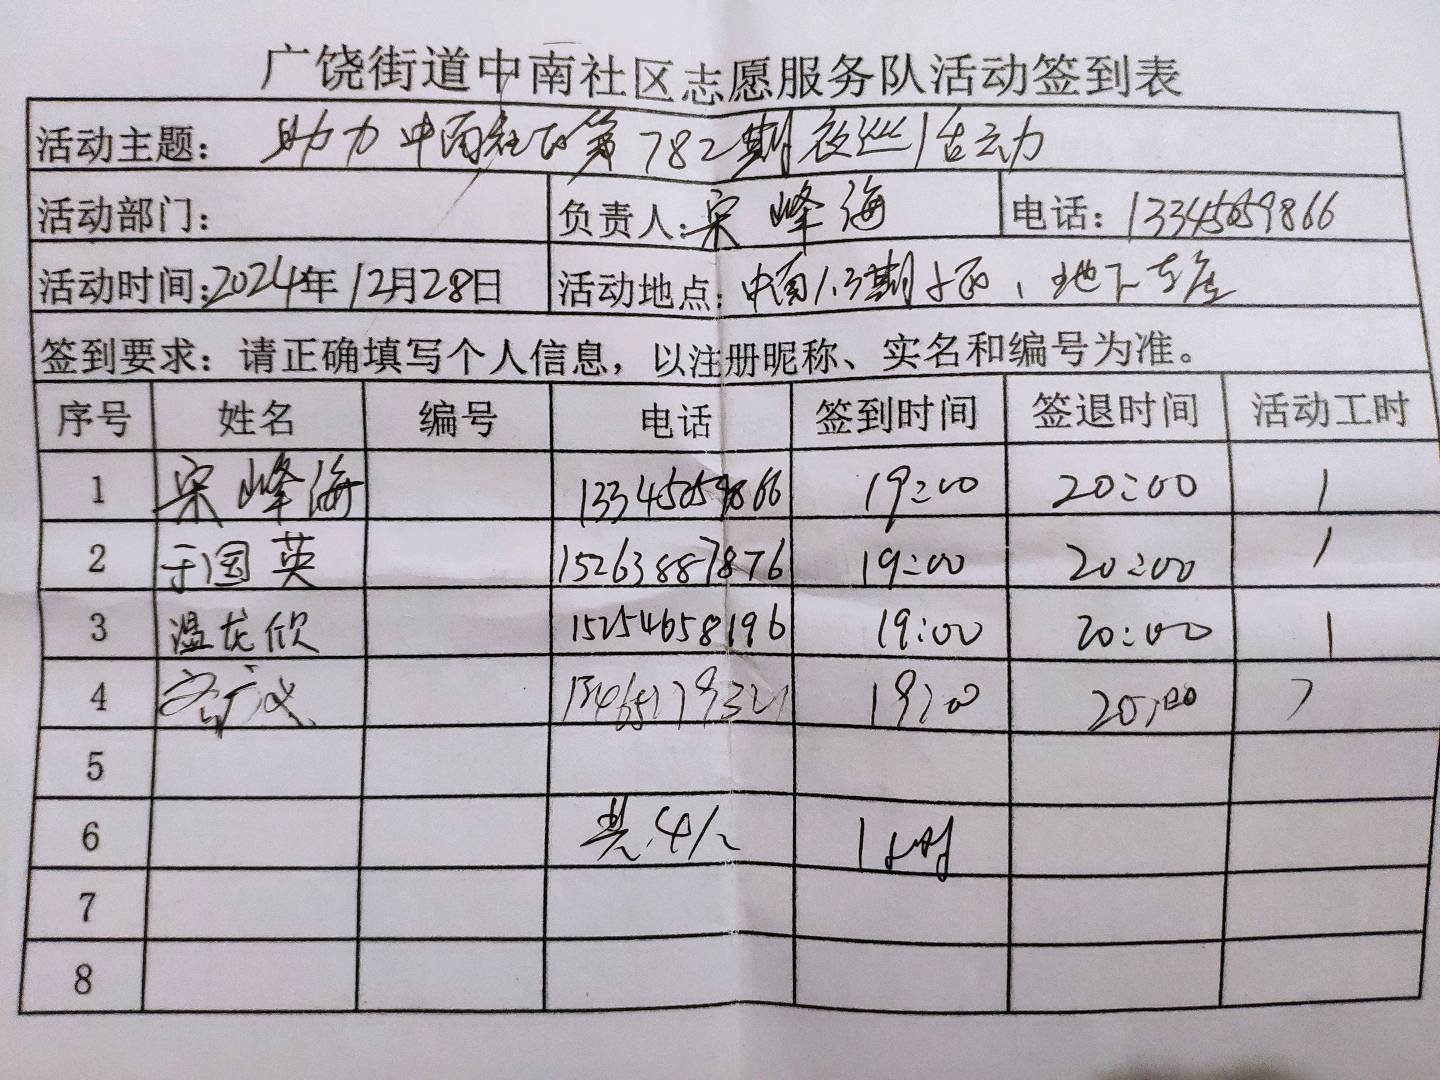 广饶街道中南社区志愿服务队活动签到表
活动主题: 助力中南社区第782期夜巡活动
活动部门: 负责人: 宋峰海 电话: 13345059866
活动时间: 2024年12月28日 活动地点: 中南1.3期 地下车库
签到要求: 请正确填写个人信息，以注册昵称、实名和编号为准。
序号 姓名 编号 电话 签到时间 签退时间 活动工时
1 宋峰海 13345059866 19:00 20:00 1
2 于国英 15263887876 19:00 20:00 1
3 温龙欣 15254658196 19:00 20:00 1
4 19:00 20:00 1
5
6 共4人 1小时
7
8